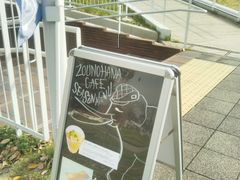 ZOUNOHANA
CAFE
SEASON